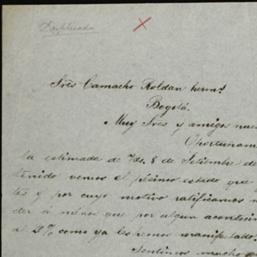 Duplicado
Sres Camacho Roldan herms.
Bogotá.
Muy Sres y amigos nue
Oportuname
la estimada de Vds, 8 de Setiembre de
tenido vemos el pésimo estado que
tes y por cuyo motivo ratificamos n
der a menos que por algun acontecim
al 2% como ya les hemos manifestado.
Sentimos mucho q